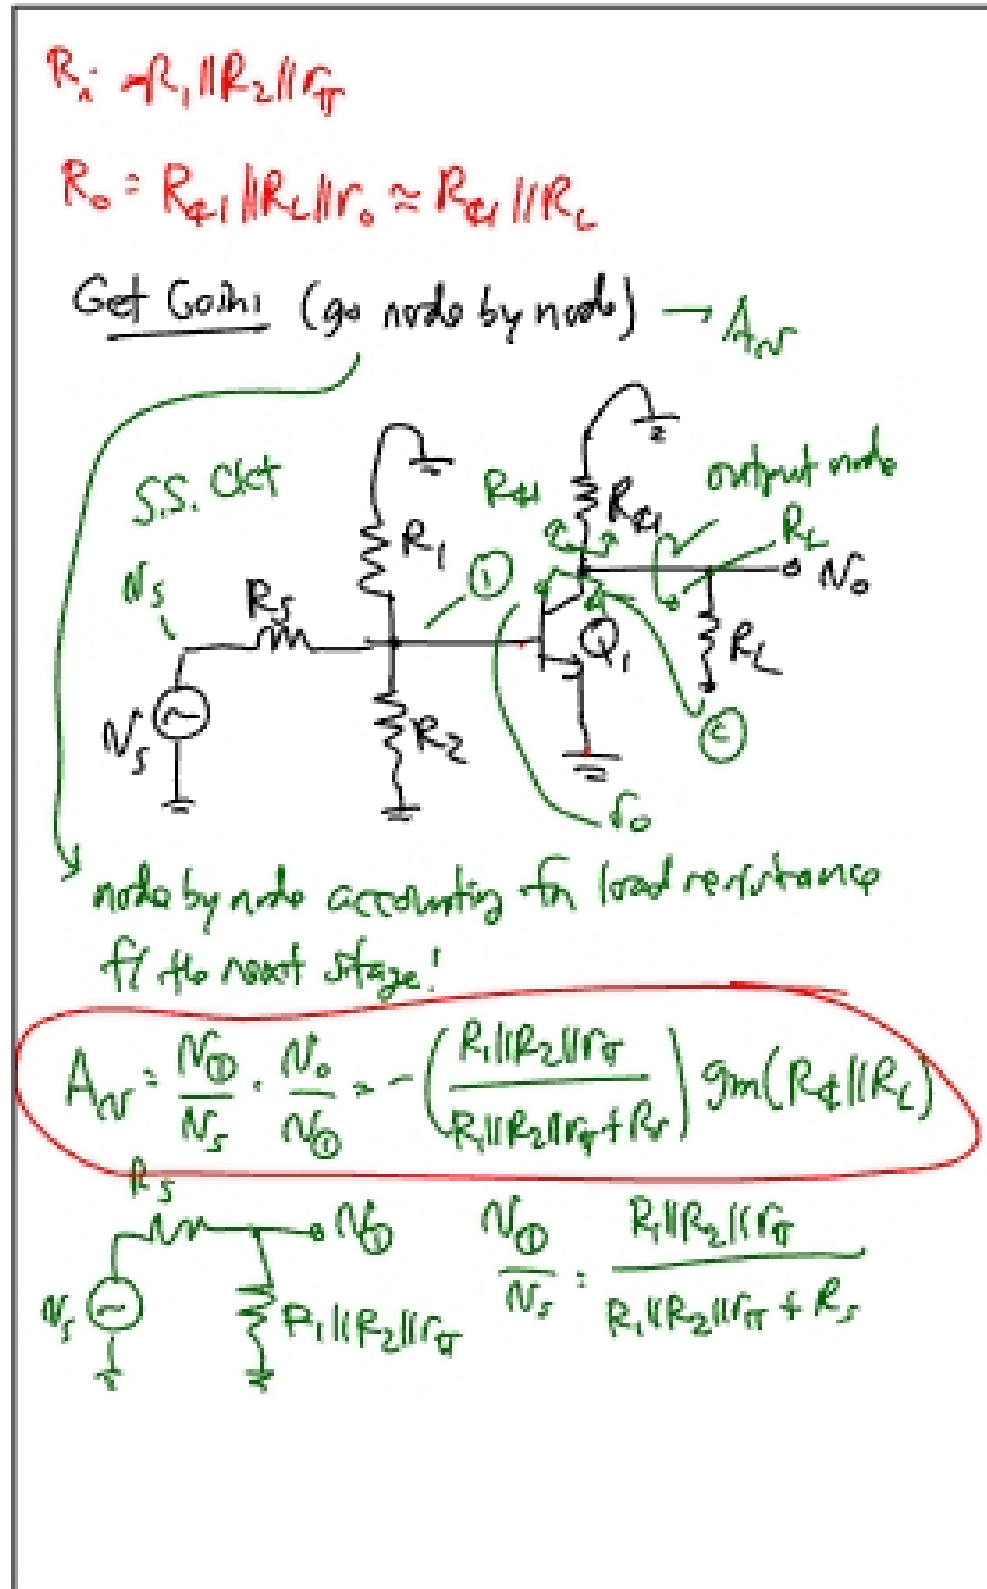 Ri = R1||R2||rπ
Ro = Rc1||RL||ro ≃ Rc1||RL
Get Gain: (go node by node) → Av
S.S. Ckt
output node
Rc1
Rc1
RL
R1
①
vo
vs
Rs
Q1
RL
vs
R2
②
ro
node by node accounting for load resistance
of the next stage!
Av = v①/vs · vo/v① = -(R1||R2||rπ / R1||R2||rπ + Rs) gm(Rc||RL)
Rs
v①
v①/vs = R1||R2||rπ / R1||R2||rπ + Rs
vs
R1||R2||rπ